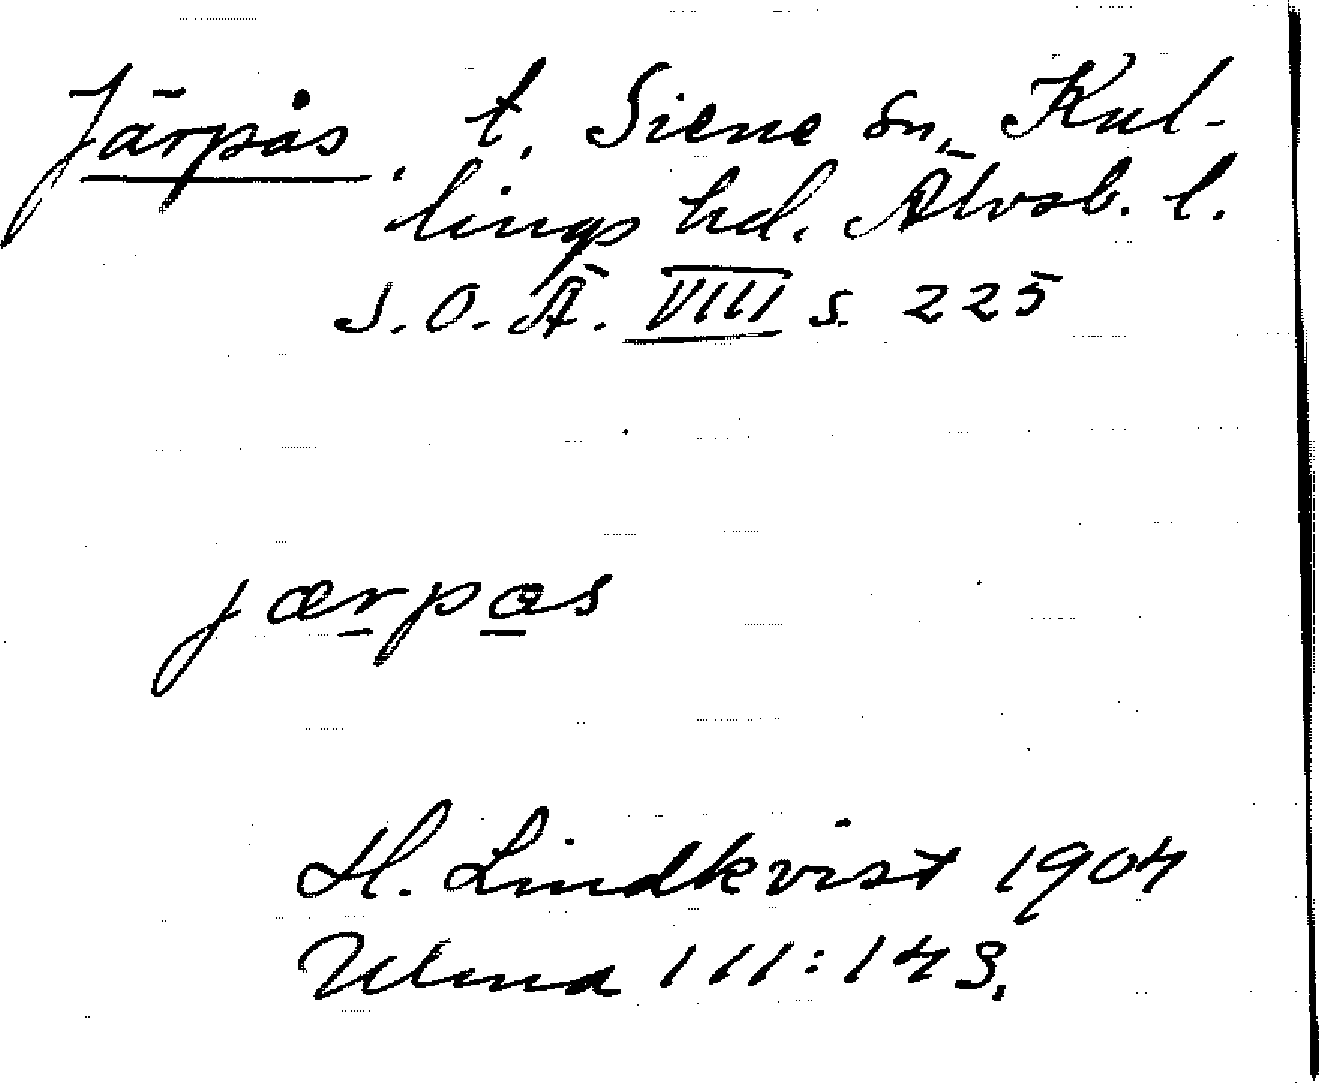 Järpås, t. Siene sn, Kul-
lings hd. Älvsb. l.
S.O.Ä. VIII s. 225
jærpas
H. Lindkvist 1904
Ulma 111:143.